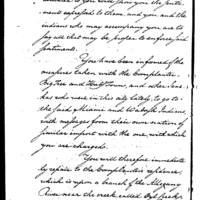 ment expressed to them, and you and the
indians who may accompany you are to
say all that may be proper to enforce such
sentiments.
You have been informed of the
measures taken with the Complanter
Big Tree and Half Town, and other Sen-
ecas in this city lately, to go to
the said Miami and Wabash Indians
with messages from their own nation of
similar import with the one, with which
you are charged.
You will therefore immediate
ly repair to the Complanter's residence,
which is upon a branch of the Allegany
River near the creek called Oyl Creek